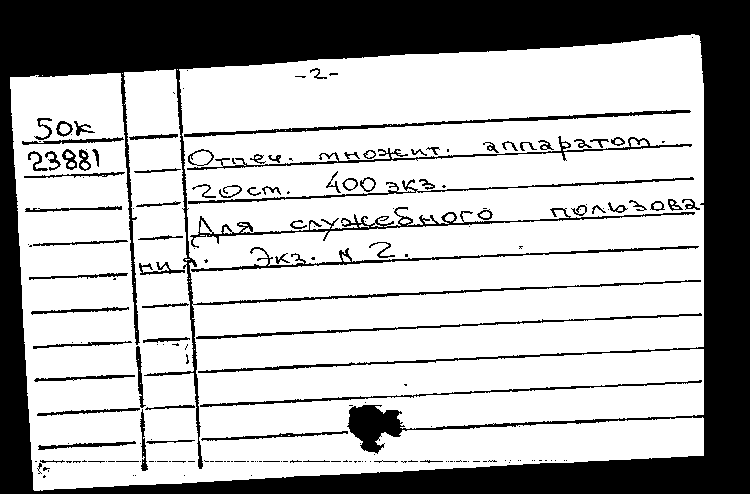 -2-
50к
23881 Отпеч. множит. аппаратом.
20 ст. 400 экз.
Для служебного пользова-
ния. Экз. N 2.